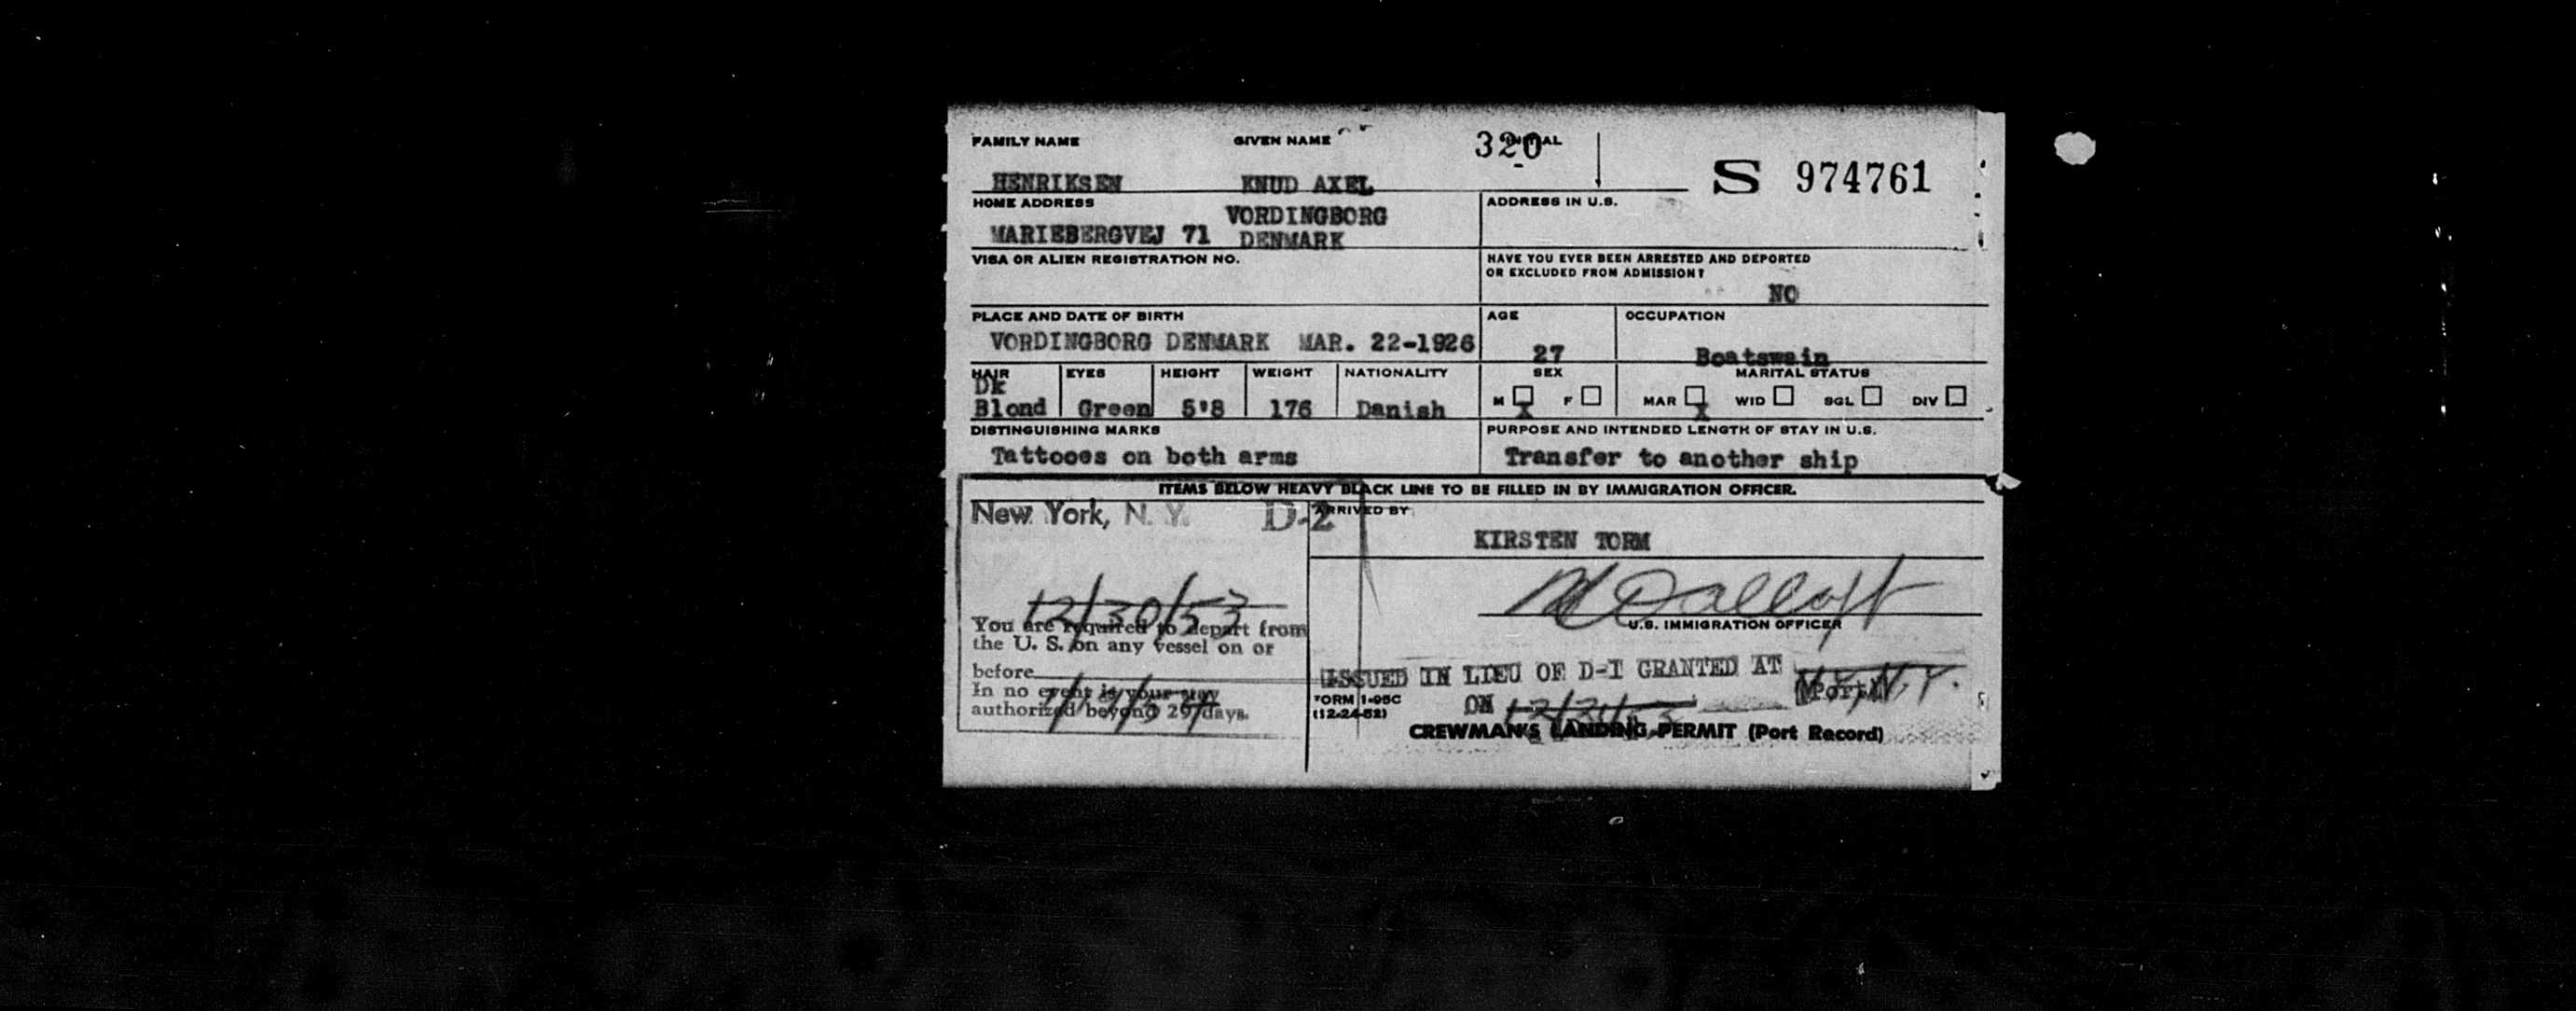 FAMILY NAME GIVEN NAME INITIAL 320
S 974761
HENRIKSEN KNUD AXEL
HOME ADDRESS ADDRESS IN U.S.
VORDINGBORG
MARIEBERGVEJ 71 DENMARK
VISA OR ALIEN REGISTRATION NO. HAVE YOU EVER BEEN ARRESTED AND DEPORTED
OR EXCLUDED FROM ADMISSION?
NO
PLACE AND DATE OF BIRTH AGE OCCUPATION
VORDINGBORG DENMARK MAR. 22-1926 27 Boatswain
HAIR EYES HEIGHT WEIGHT NATIONALITY SEX MARITAL STATUS
Dk
Blond Green 5'8 176 Danish M X F MAR X WID SGL DIV
DISTINGUISHING MARKS PURPOSE AND INTENDED LENGTH OF STAY IN U.S.
Tattooes on both arms Transfer to another ship
ITEMS BELOW HEAVY BLACK LINE TO BE FILLED IN BY IMMIGRATION OFFICER.
New York, N. Y. D-2 ARRIVED BY
KIRSTEN TORM
12/30/53
You are required to depart from U.S. IMMIGRATION OFFICER
the U. S. on any vessel on or
before ISSUED IN LIEU OF D-1 GRANTED AT N.Y.
(Port)
In no event is your stay FORM I-95C ON
authorized beyond 29 days. (12-24-52)
CREWMAN'S LANDING PERMIT (Port Record)